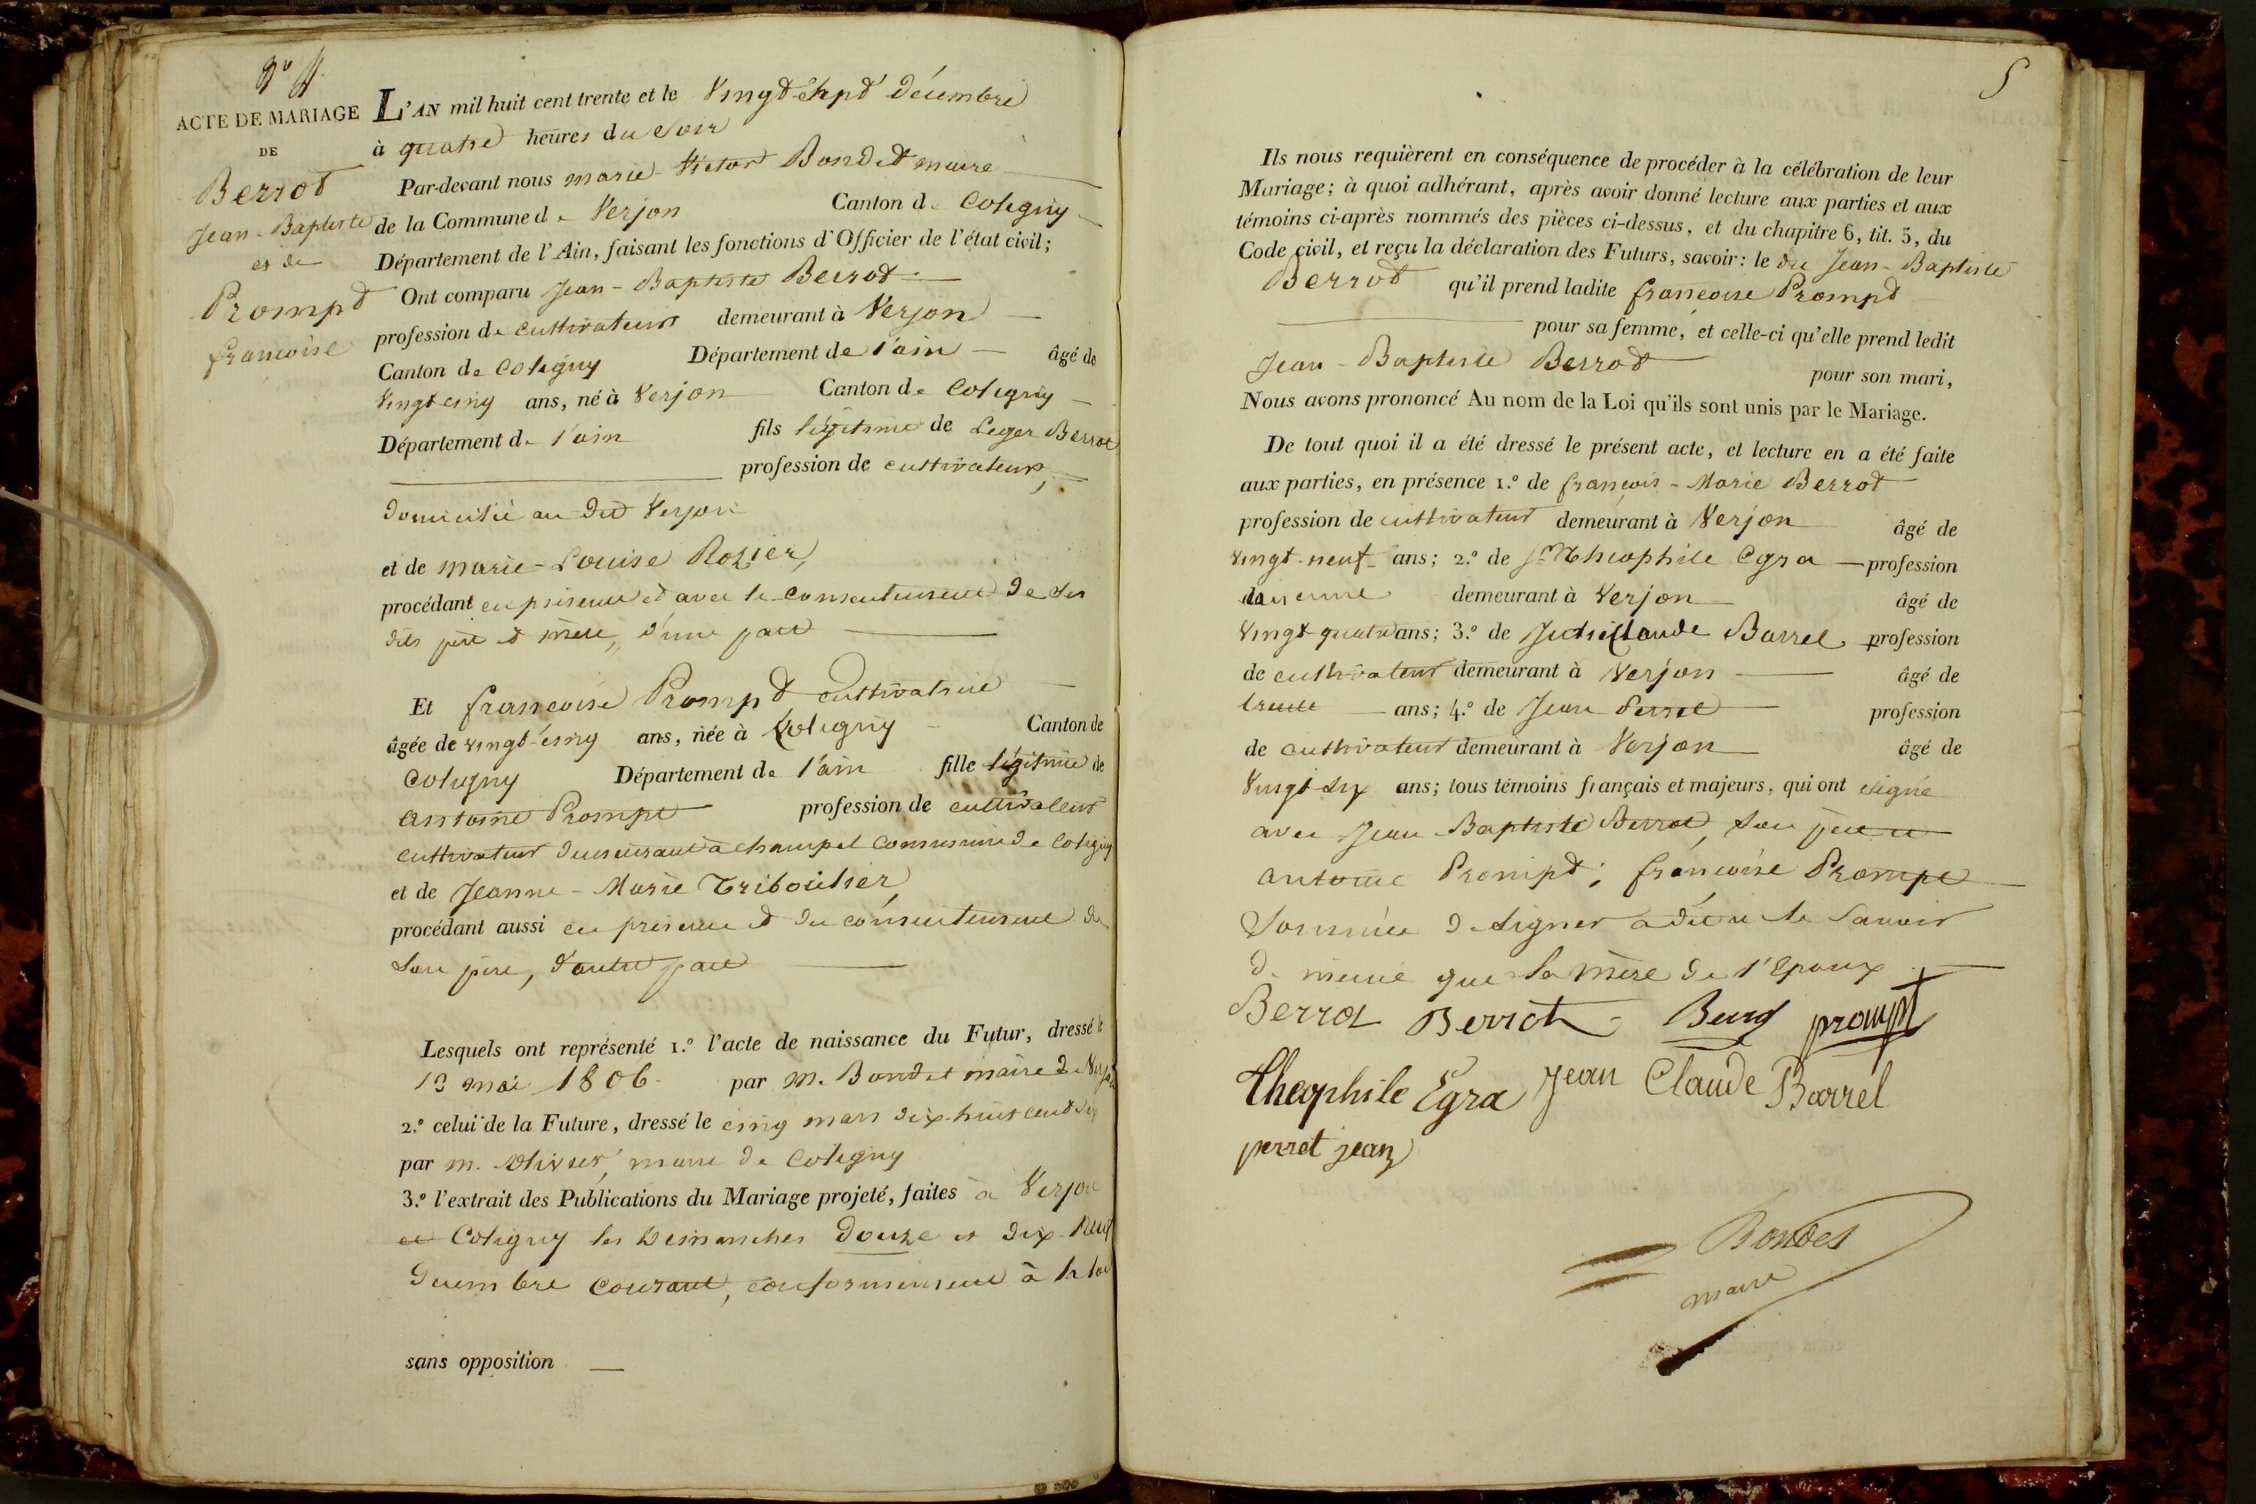 N.º 4.
ACTE DE MARIAGE
DE
Berrod
Jean-Baptiste
et de
Prompd
françoise
L'AN mil huit cent trente et le vingt-sept décembre
à quatre heures du soir
Par-devant nous marie-Victor Bondet maire
de la Commune de Verjon Canton de Coligny
Département de l'Ain, faisant les fonctions d'Officier de l'état civil;
Ont comparu Jean-Baptiste Berrod
profession de cultivateur demeurant à Verjon
Canton de Coligny Département de l'ain âgé de
vingt cinq ans, né à Verjon Canton de Coligny
Département de l'ain fils légitime de Leger Berrod
profession de cultivateur,
domicilié au dit Verjon
et de marie-Louise Rozier,
procédant en présence et avec le consentement de ses
dits père et mère, d'une part
Et françoise Prompd cultivatrice
âgée de vingt-cinq ans, née à Coligny Canton de
Coligny Département de l'ain fille légitime de
antoine Prompt profession de cultivateur
cultivateur demeurant à champel commune de Coligny
et de Jeanne-Marie Triboulier,
procédant aussi en présence et du consentement de
son père, d'autre part
Lesquels ont représenté 1.º l'acte de naissance du Futur, dressé le
13 mai 1806 par m. Bondet maire de Verjon
2.º celui de la Future, dressé le cinq mars dix-huit cent six
par m. olivier, maire de Coligny
3.º l'extrait des Publications du Mariage projeté, faites à Verjon
et Coligny les Dimanches Douze et dix-neuf
décembre courant, conformément à la loi
sans opposition
5
Ils nous requièrent en conséquence de procéder à la célébration de leur
Mariage; à quoi adhérant, après avoir donné lecture aux parties et aux
témoins ci-après nommés des pièces ci-dessus, et du chapitre 6, tit. 5, du
Code civil, et reçu la déclaration des Futurs, savoir: le dit Jean-Baptiste
Berrod qu'il prend ladite françoise Prompd
pour sa femme, et celle-ci qu'elle prend ledit
Jean-Baptiste Berrod pour son mari,
Nous avons prononcé Au nom de la Loi qu'ils sont unis par le Mariage.
De tout quoi il a été dressé le présent acte, et lecture en a été faite
aux parties, en présence 1.º de françois-Marie Berrod
profession de cultivateur demeurant à Verjon âgé de
vingt-neuf ans; 2.º de Théophile Egra profession
demeurant à Verjon âgé de
vingt-quatre ans; 3.º de Claude Barrel profession
de cultivateur demeurant à Verjon âgé de
trente ans; 4.º de Jean Perret profession
de cultivateur demeurant à Verjon âgé de
vingt six ans; tous témoins français et majeurs, qui ont signé
avec Jean Baptiste Berrod, son père et
antoine Prompd; françoise Prompt
Sommée de signer a dit ne le savoir
de meme que la mère de l'Epoux
Berrot Berrot prompt
Theophile Egra Jean Claude Barrel
perret jean
Bondet
maire